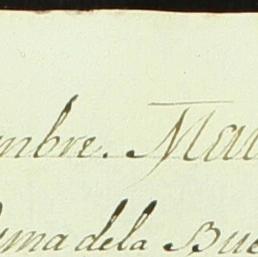 mbre. Mau
uma dela Bue